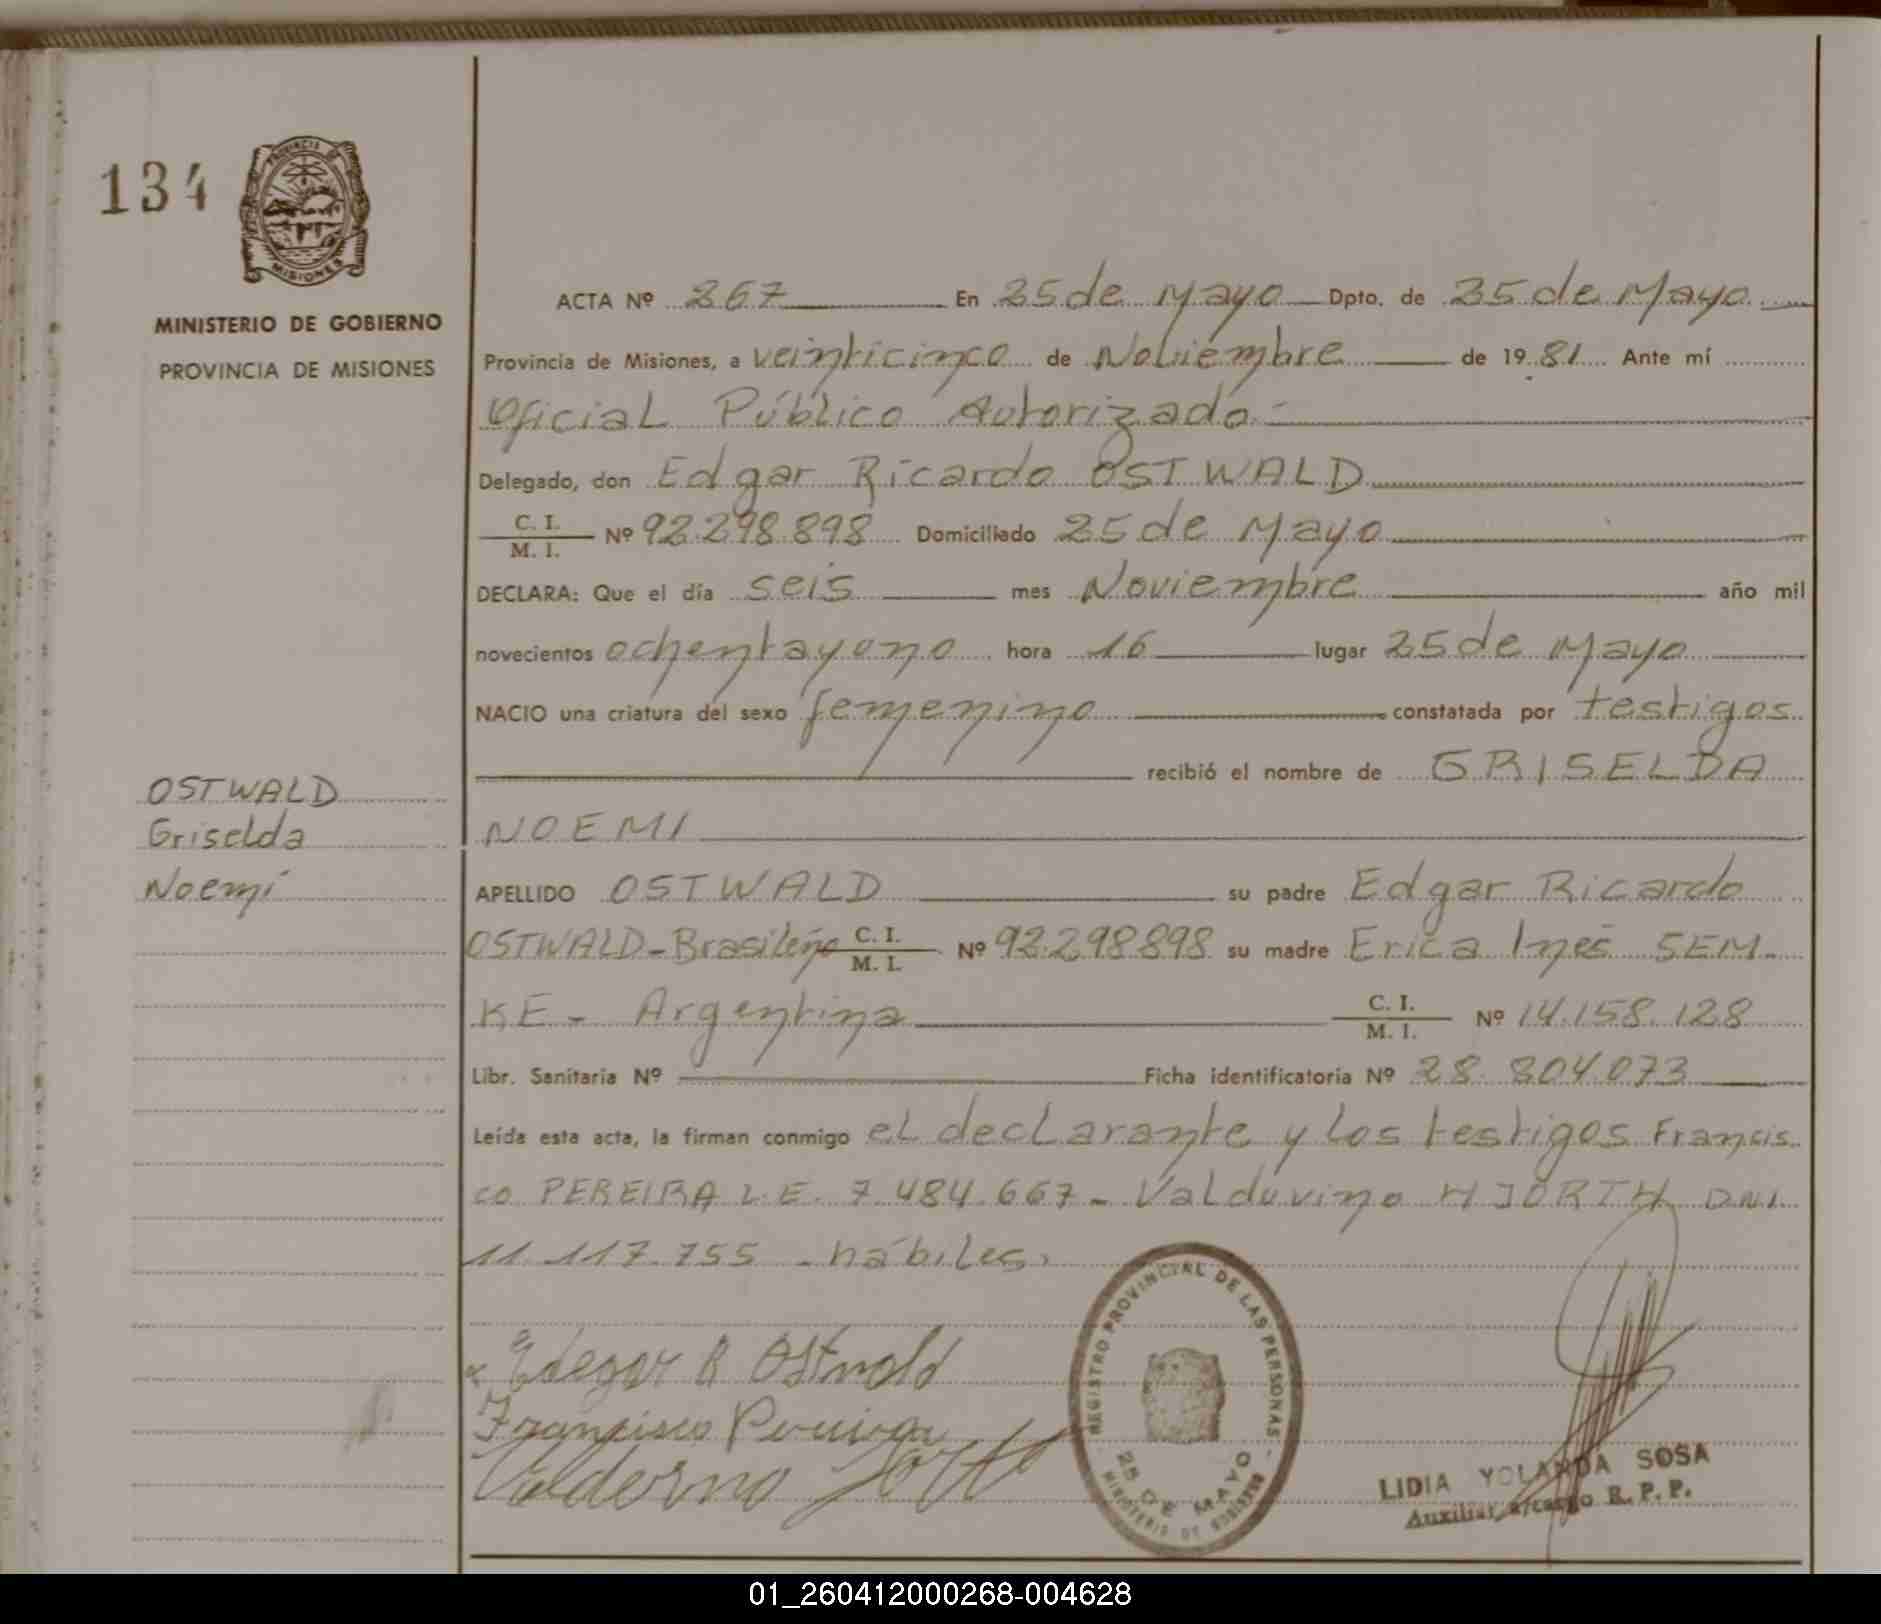 134
PROVINCIA DE
MISIONES
MINISTERIO DE GOBIERNO
PROVINCIA DE MISIONES
ACTA Nº 267 En 25 de Mayo Dpto. de 25 de Mayo
Provincia de Misiones, a veinticinco de Noviembre de 19 81 Ante mí
Oficial Público Autorizado.-
Delegado, don Edgar Ricardo OSTWALD
C. I.
M. I. Nº 92.298.898 Domiciliado 25 de Mayo
DECLARA: Que el día seis mes Noviembre año mil
novecientos ochentayuno hora 16 lugar 25 de Mayo
NACIO una criatura del sexo femenino constatada por testigos
recibió el nombre de GRISELDA
NOEMI
OSTWALD
Griselda
Noemí
APELLIDO OSTWALD su padre Edgar Ricardo
OSTWALD-Brasileño C. I.
M. I. Nº 92.298898 su madre Erica Inés SEM-
KE - Argentina C. I.
M. I. Nº 14.158.128
Libr. Sanitaria Nº Ficha identificatoria Nº 28.804.073
Leída esta acta, la firman conmigo el declarante y los testigos Francis-
co PEREIRA L.E. 7.484.667- Valduvino HJORTH DNI
11.117.755 - hábiles.
Edegar R Ostwald
Francisco Pereira
REGISTRO PROVINCIAL DE LAS PERSONAS
25 DE MAYO
MINISTERIO DE GOBIERNO
LIDIA YOLANDA SOSA
Auxiliar a/cargo R. P. P.
01_260412000268-004628